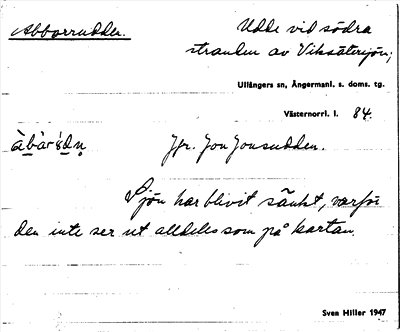 Abborrudden.
Udde vid södra
stranden av Viksätersjön;
Ullångers sn, Ångermanl. s. doms. tg.
Västernorrl. l. 84.
Jfr. Jon Jonsudden.
Sjön har blivit sänkt, varför
den inte ser ut alldeles som på kartan.
Sven Hiller 1947